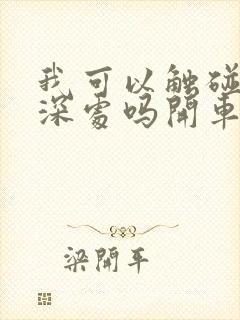 我可以触碰
深處吗開車
梁開平